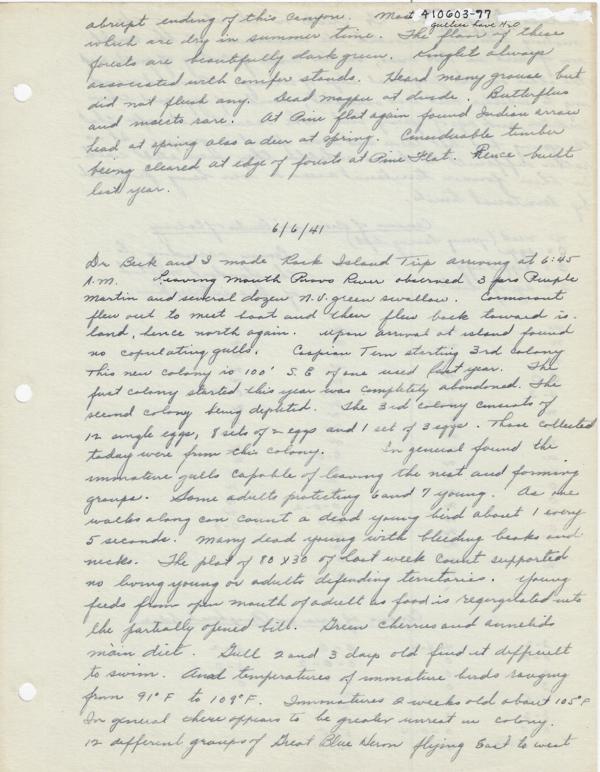 410603-77
gullies have H2O
abrupt ending of this canyon. Most
which are dry in summer time. The floor of these
forests are beautifully dark green. Kinglet always
associated with conifer stands. Heard many grouse but
did not flush any. Dead magpie at divide. Butterflies
and insects rare. At Pine flat again found Indian arrow
head at spring also a deer at spring. Considerable timber
being cleared at edge of forests at Pine Flat. Fence built
last year.
6/6/41
Dr Beck and I made Rock Island Trip arriving at 6:45
A.M. Leaving Mouth Provo River observed 3 prs Purple
Martin and several dozen N.V. green swallow. Cormorant
flew out to meet boat and then flew back toward is-
land, hence north again. Upon arrival at island found
no copulating gulls. Caspian Tern starting 3rd colony
This new colony is 100' S.E of one used last year. The
first colony started this year was completely abandoned. The
second colony being depleted. The 3rd colony consists of
12 single eggs, 8 sets of 2 eggs and 1 set of 3 eggs. Those collected
today were from this colony. In general found the
immature gulls capable of leaving the nest and forming
groups. Some adults protecting 6 and 7 young. As one
walks along can count a dead young bird about 1 every
5 seconds. Many dead young with bleeding beaks and
necks. The plot of 80 X 30 of last week count supported
no living young or adults defending territories. Young
feeds from open mouth of adult as food is regergitated into
the partially opened bill. Green cherries and annelids
main diet. Gull 2 and 3 days old find it difficult
to swim. Anal temperatures of immature birds ranging
from 91°F to 109°F. Immatures 2 weeks old about 105°F
In general there appears to be greater unrest in colony.
12 different groups of Great Blue Heron flying East to west